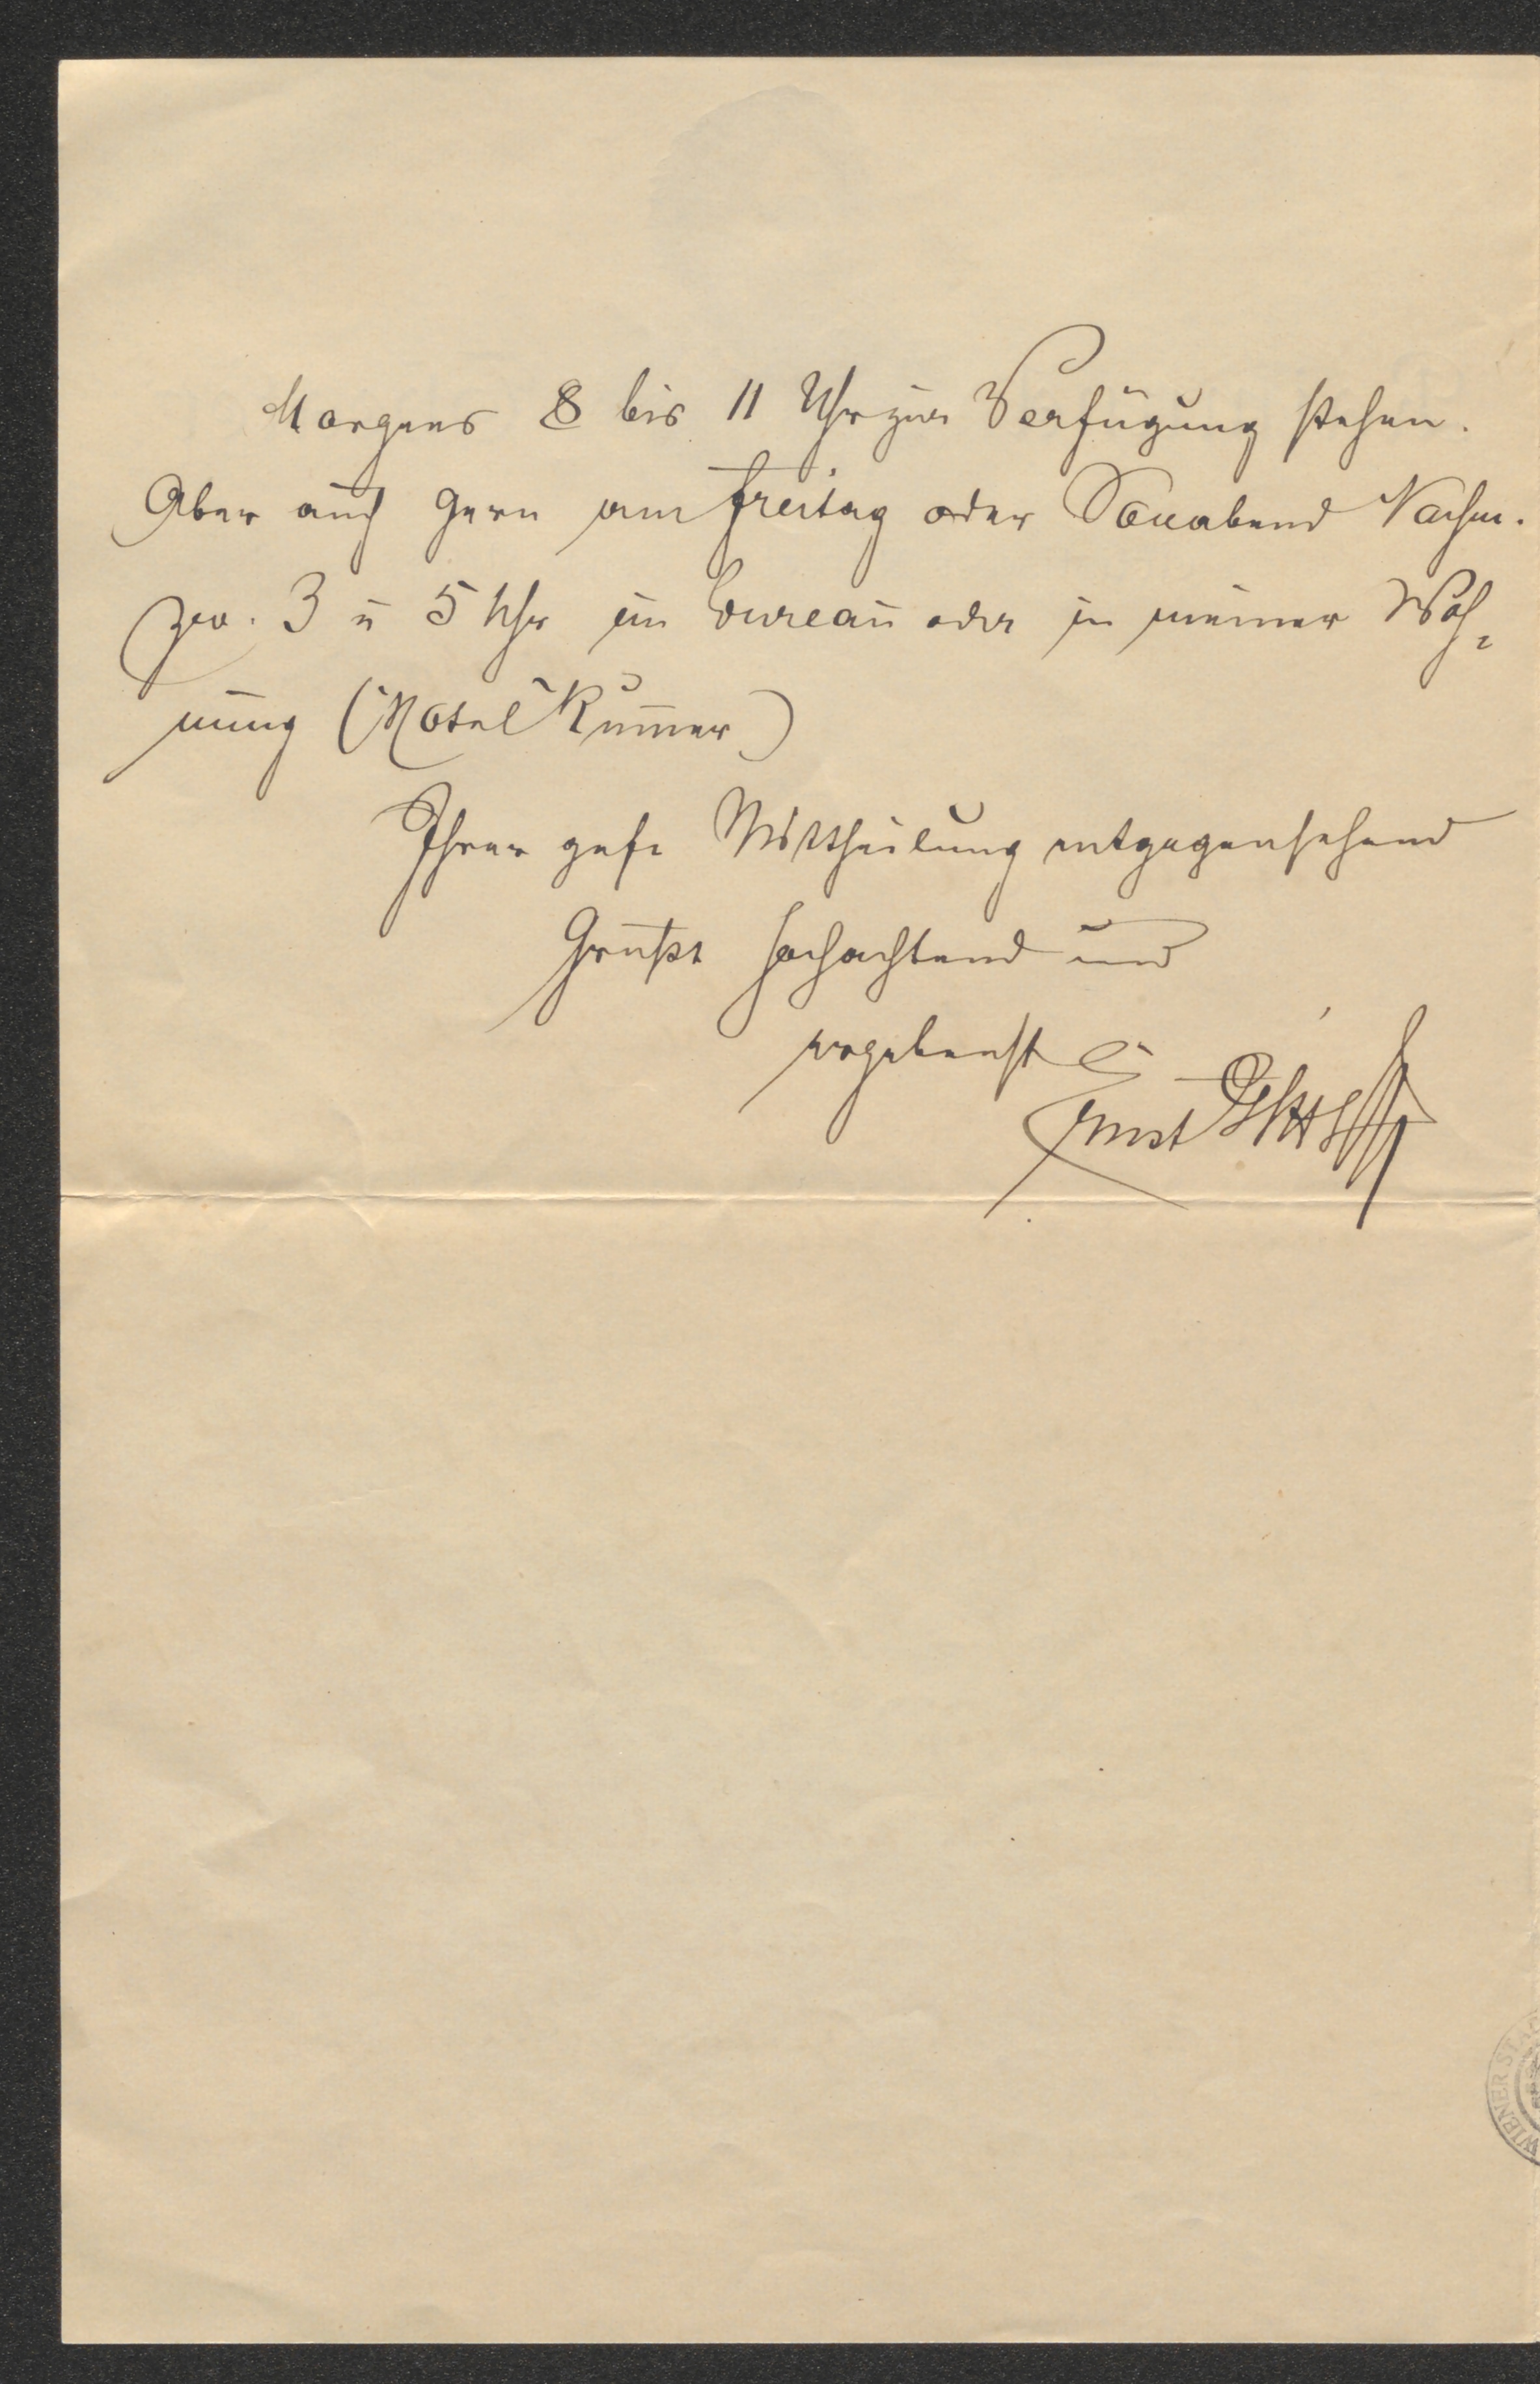 Morgens 8 bis 11 Uhr zur Verfügung stehen.
Aber auch gern am Freitag oder Sonabend Nachm.
zw. 3 u 5 Uhr im Bureau oder in meiner Woh-
nung (Hotel Kum̅er)
Ihrer gefl Mittheilung entgegensehend
Grüßt hochachtend und
ergebenst
Ernst
WIENER ST